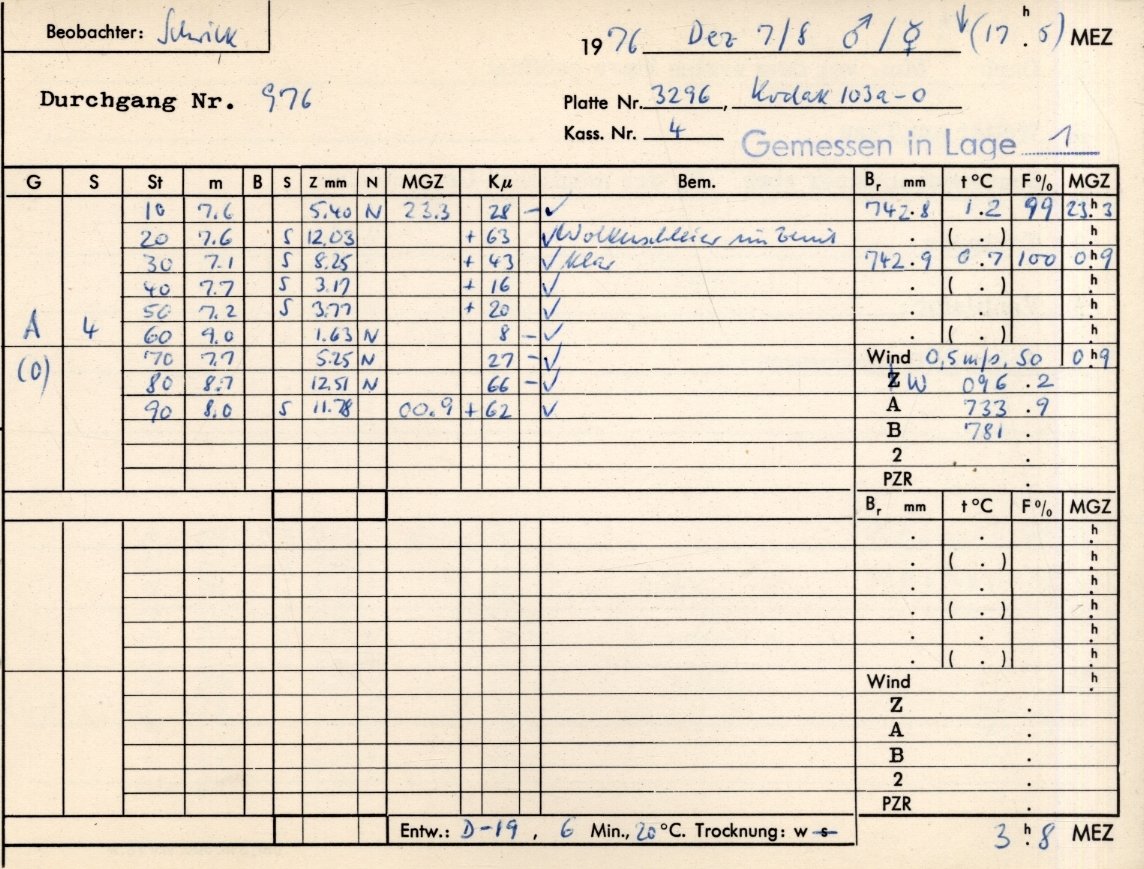 Beobachter: Schrick
1976 Dez 7/8 ♂/☿ ↓(17 h. 5) MEZ
Durchgang Nr. 976
Platte Nr. 3296, Kodak 103a-O
Kass. Nr. 4
Gemessen in Lage 1
G S St m B S Z mm N MGZ Kμ Bem. Br mm t °C F % MGZ
10 7.6 5.40 N 23.3 28 - ✓ 742.8 1.2 99 23.h3
20 7.6 S 12.03 + 63 ✓ Wolkenschleier im Zenit . ( . ) .h
30 7.1 S 8.25 + 43 ✓ klar 742.9 0.7 100 0.h9
40 7.7 S 3.17 + 16 ✓ . ( . ) .h
50 7.2 S 3.77 + 20 ✓ . . .h
A 4 60 9.0 1.63 N 8 - ✓ . ( . ) .h
(0) 70 7.7 5.25 N 27 - ✓ Wind 0,5 m/s, SO 0.h9
80 8.7 12.51 N 66 - ✓ Z W 096.2
90 8.0 S 11.78 00.9 + 62 ✓ A 733.9
B 781.
2 .
PZR .
Br mm t °C F % MGZ
. . .h
. ( . ) .h
. . .h
. ( . ) .h
. . .h
. ( . ) .h
Wind .h
Z .
A .
B .
2 .
PZR .
Entw.: D-19, 6 Min., 20 °C. Trocknung: w s
3 h. 8 MEZ